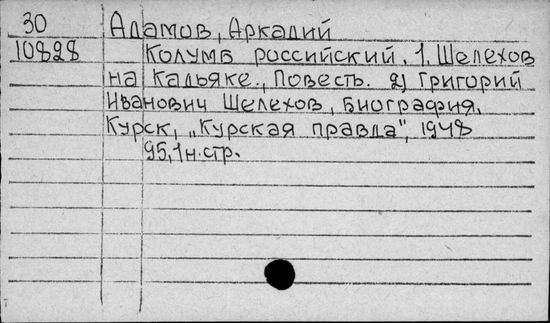 30 Адамов, Аркадий
10828 Колумб российский. 1. Шелехов
на Кадьяке., Повесть. 2) Григорий
Иванович Шелехов, биография.
Курск, „Курская правда", 1948
95,1н.стр.